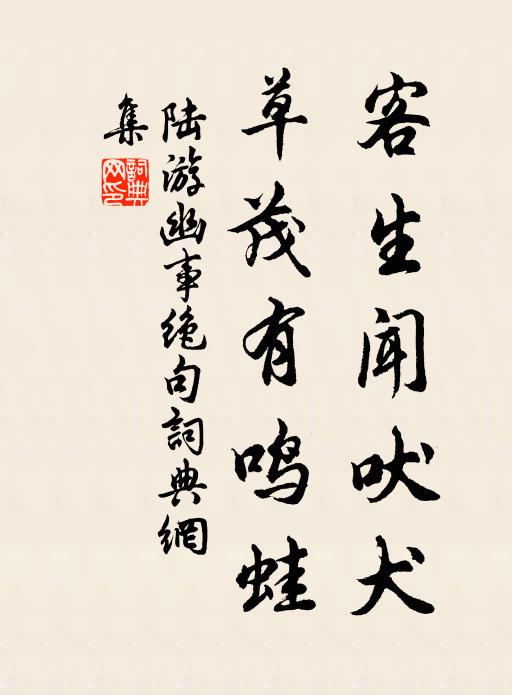 客生闻吠犬
草茂有鸣蛙
陆游幽事绝句詞典網
集
詞典网印